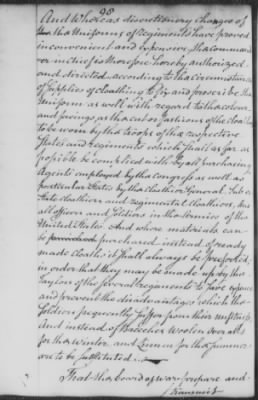 98
And Whereas discretionary changes of
the Uniforms of regiments have proved
inconvenient and expensive, the command
er in chief is therefore hereby authorized
and directed, according to the circumstances
of supplies of cloathing to fix and prescribe the
Uniform as well with regard to the colour
and facings, as the cut or fashions of the cloaths
to be worn by the troops of the respective
States and regiments which shall as far as
possible be complied with by all purchasing
Agents employed by the congress as well as
particular States by the Cloathier General. Sub or
State cloathiers and regimental Cloathiers, and
all officers and soldiers in the armies of the
United States. And where materials can
be purchased instead of ready
made Cloaths it shall always be preferred
in order that they may be made up by the
Taylors of the several regiments to save expence
and prevent the disadvantages which the
Soldiers frequently suffer from their unfitness
And instead of Breeches Woolen overalls
for the winter and Linnen for the summer
are to be substituted.
That the board of war prepare and
transmit